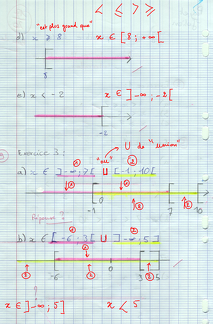 "est plus grand que" < ≤ > ≥
d) x ≥ 8 x ∈ [8 ; +∞[
8
e) x < -2 x ∈ ]-∞ ; -2[
-2
Exercice 3 : "ou" U de "union"
a) x ∈ ]-∞ ; 7[ U [-1 ; 10[
-1 0 7 10
Réponse ?
b) x ∈ [-6 ; 3[ U ]-∞ ; 5]
-6 0 3 5
x ∈ ]-∞ ; 5] x ≤ 5